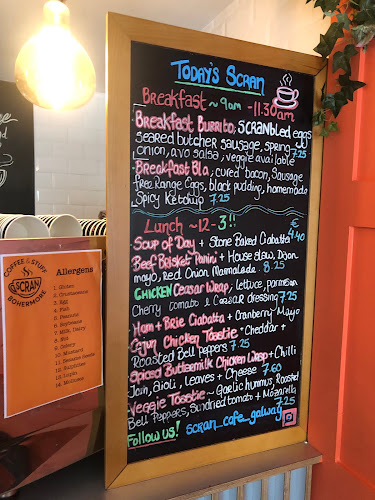 TODAY'S SCRAN
Breakfast ~ 9am - 11.30am
Breakfast Burrito; SCRANbled eggs
seared butcher sausage, spring
onion, avo salsa, veggie available 7.25
Breakfast Bla, cured bacon, Sausage
free Range Eggs, black pudding, homemade
Spicy Ketchup 7.25
Lunch ~12-3!!
€
Soup of Day + Stone Baked Ciabatta 4.40
Beef Brisket Panini + House slaw, Dijon
mayo, red Onion Marmalade 8.25
CHICKEN Ceasar Wrap; lettuce, parmesan
Cherry tomato & Caesar dressing 7.25
Ham + Brie Ciabatta + Cranberry Mayo
Cajun Chicken Toastie + Cheddar +
Roasted Bell peppers 7.25
Spiced Buttermilk Chicken Wrap + Chilli
Jam, Aioli, Leaves + Cheese 7.60
Veggie Toastie ~ Garlic hummus, Roasted
Bell Peppers, Sundried tomato + Mozarella
7.25
Follow us! scran_cafe_galway
COFFEE & STUFF
SCRAN
BOHERMORE
Allergens
1. Gluten
2. Crustaceans
3. Egg
4. Fish
5. Peanuts
6. Soybeans
7. Milk, Dairy
8. Nut
9. Celery
10. Mustard
11. Sesame Seeds
12. Sulphites
13. Lupin
14. Molluscs